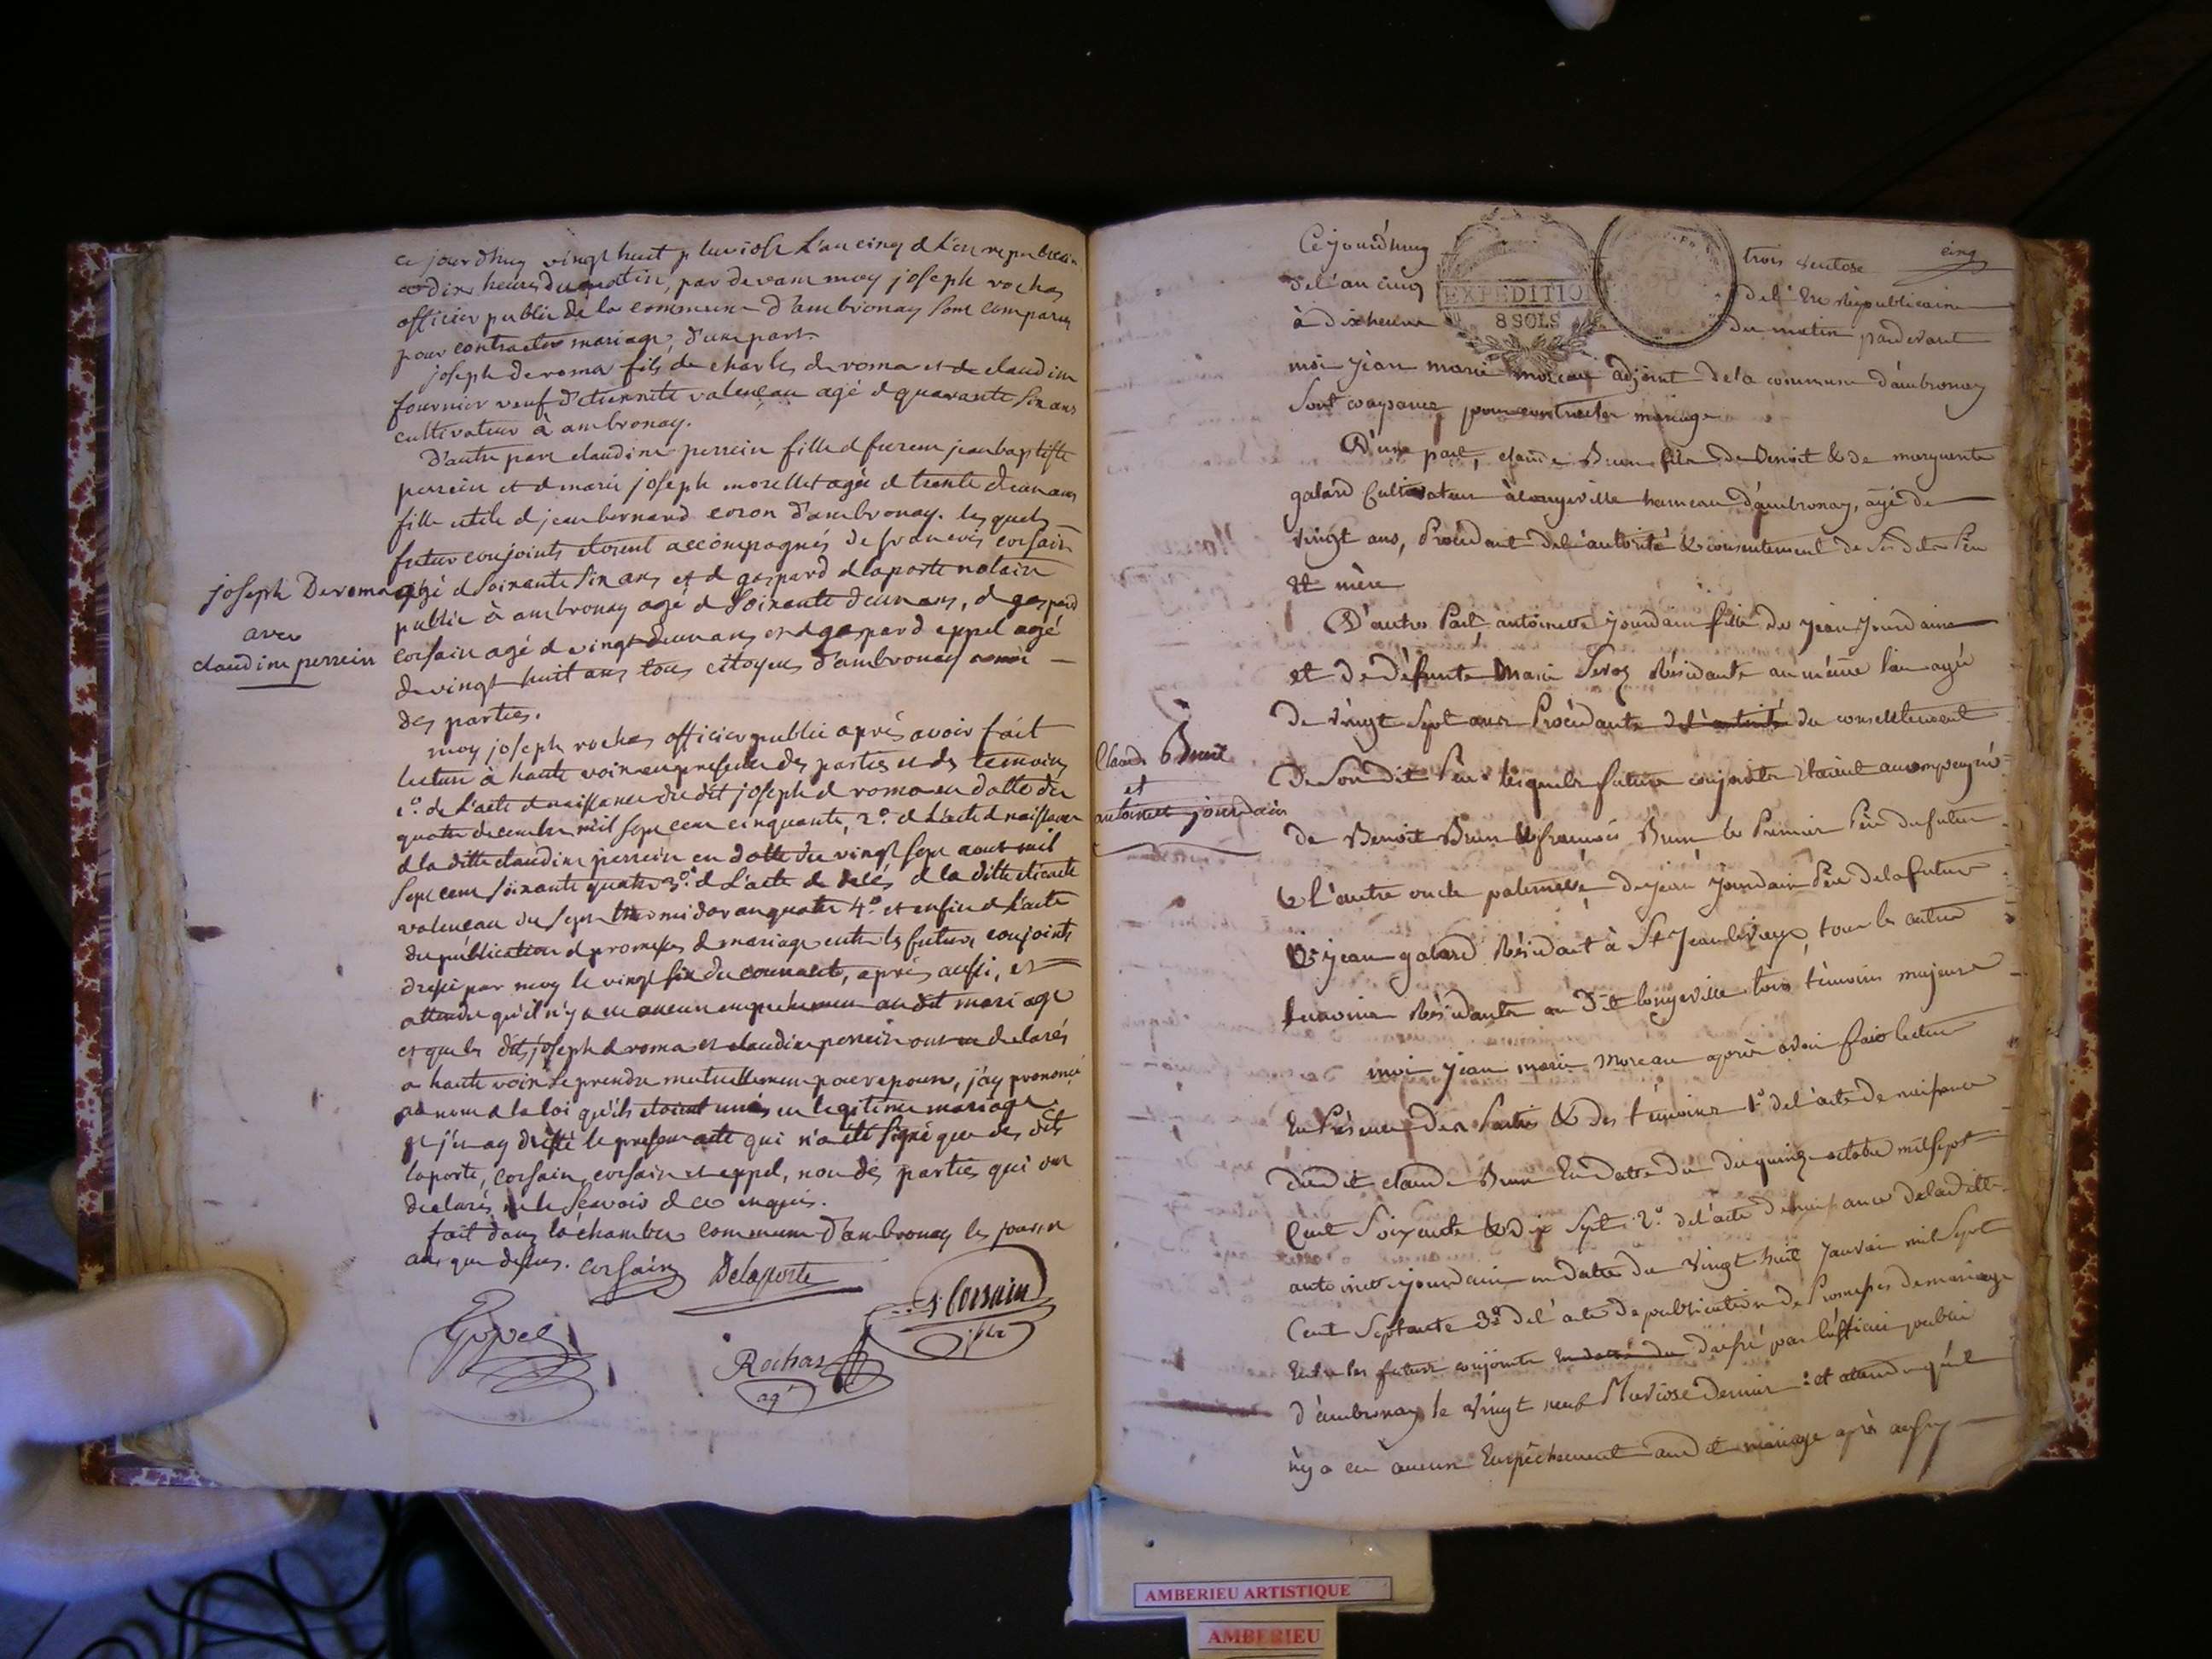 ce jourdhuy vingt huit pluviose l'an cinq d l'ere republicain
a dix heures du matin, par devant moy joseph rochas
officier public de la commune d'ambronay sont comparus
pour contracter mariage, d'une part
joseph deroma fils de charles deroma et de claudine
fournier veuf d'etiennette valencau agé d quarante six ans
cultivateur à ambronay.
D'autre part claudine perrein fille d fureur jean baptiste
perrein et d marie joseph morellet agée d trente deux ans
fille utile d jean bernard coron d'ambronay. les quels
futur conjoints etoient accompagnés de francois corsain
agé d soixante six ans et d gaspard delaporte notaire
public à ambronay agé d soixante deux ans, d gaspard
corsain agé d vingt deux ans et d gaspard eppel agé
de vingt huit ans tous citoyens d'ambronay
des parties.
joseph Deroma
avec
claudine perrein
moy joseph rochas officier public après avoir fait
lecture à haute voix en presence des parties et des temoins
1.º de l'acte d naissance du dit joseph d roma en datte du
quatre decembre mil sept cent cinquante, 2.º d l'acte d naissance
d la ditte claudine perrein en datte du vingt sept aout mil
sept cent soixante quatre 3.º d l'acte de delés d la ditte eticente
valencau du sept thermidor an quatre 4.º et enfin d l'acte
du publication d promesses d mariage entre les futurs conjoints
dressé par moy le vingt six du courant, après aussi, et
attendu qu'il n'y a eu aucun empechement au dit mariage
et que les dits joseph d roma et claudine perrein ont declarés
a haute voix se prendre mutuellement pour epoux, j'ay prononcé
au nom d la loi qu'ils etoient unis en legitime mariage
et j'en ay dressé le present acte qui n'a été signé que des dits
laporte, corsain, corsain et eppel, non des parties qui ont
declarés ne le scavoir de ce enquis.
fait dans la chambre commune d'ambronay les jour et
an que dessus. Corsain Delaporte
G Corsain
fils
Eppel
Rochas
agt
cinq
Ce jourd'huy trois ventose
de l'an cinq de l'Ere républicaine
à dix heures du matin pardevant
EXPEDITION
8 SOLS
moi jean marie moreau adjoint de la commune d'ambronay
Sont comparus pour contracter mariage
D'une part, claude Brun fils de Benoit & de marguerite
galard Cultivateur à longeville hameau d'ambronay, agé de
vingt ans, Procédant de l'autorité & consentement de ses dits Père
et mère
D'autre Part, antoinette jourdain fille de jean jourdain
et de défunte Marie Résidante au même lieu agée
de vingt sept ans Procédante de l'autorité du consentement
De Son dit Père. lesquels futurs conjoints étaient accompagnés
Claude Brun
et
antoinette jourdain
de Benoit Brun & françois Brun le Premier Père du futur
& l'autre oncle paternel, de jean jourdain Père de la future
& jean galard Résidant à St Jean le vieux, tous les autres
temoins Résidants au dit longeville tous témoins majeurs
moi jean marie moreau après avoir fait lecture
En Présence des Parties & des témoins 1º de l'acte de naissance
dudit claude Brun En datte du quinze octobre mil sept
Cent Soixante & dix Sept. 2º. de l'acte de naissance de la ditte
antoinette jourdain en datte du vingt huit janvier mil sept
Cent Septante 3º de l'acte de publication de Promesses de mariage
Entre les futurs conjoints en datte du dressé par l'officier public
d'ambronay le vingt neuf Pluviose dernier : et attendu qu'il
n'y a eu aucun Empêchement audit mariage après aussy
AMBERIEU ARTISTIQUE
AMBERIEU